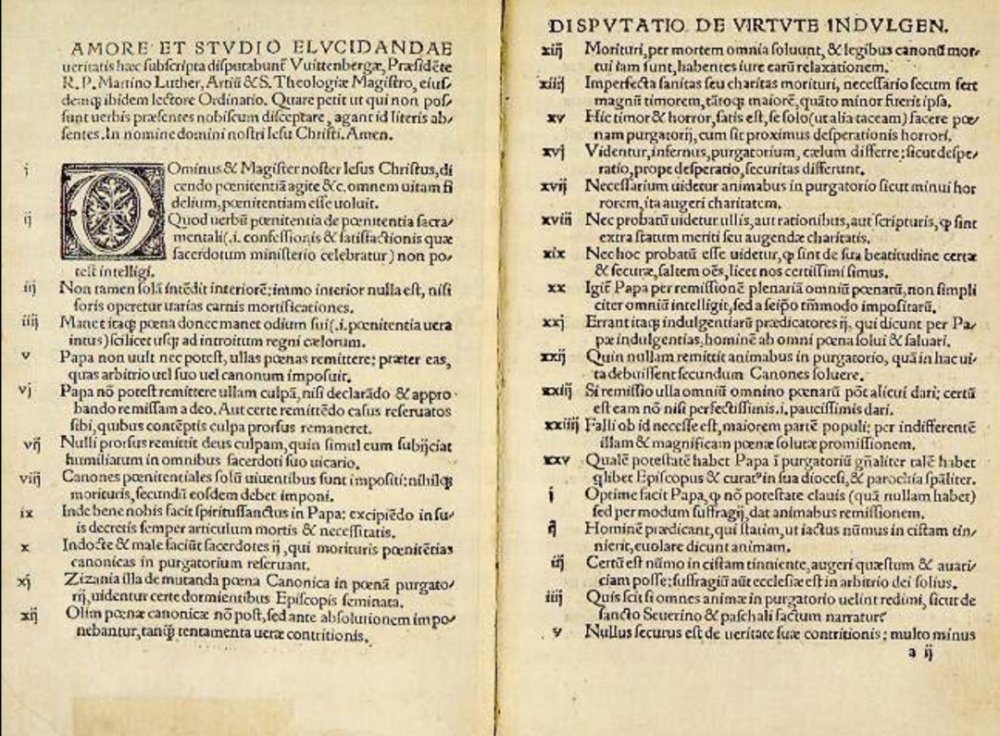 AMORE ET STVDIO ELVCIDANDAE
ueritatis hæc subscripta disputabunt Vuittenbergæ, Præsidēte
R. P. Martino Luther, Artiū & S. Theologiæ Magistro, eius/
demq; ibidem lectore Ordinario. Quare petit ut qui non pos/
sunt uerbis præsentes nobiscum disceptare, agant id literis ab/
sentes. In nomine domini nostri Iesu Christi. Amen.
i DOminus & Magister noster Iesus Christus, di
cendo pœnitentiā agite &c. omnem uitam fi
delium, pœnitentiam esse uoluit.
ij Quod uerbū pœnitentia de pœnitentia sacra/
mentali (.i. confessionis & satisfactionis quæ
sacerdotum ministerio celebratur) non po/
test intelligi.
iij Non tamen solā intēdit interiorē: immo interior nulla est, nisi
foris operetur uarias carnis mortificationes.
iiij Manet itaq; pœna donec manet odium sui (.i. pœnitentia uera
intus) scilicet usq; ad introitum regni cælorum.
v Papa non uult nec potest, ullas pœnas remittere: præter eas,
quas arbitrio uel suo uel canonum imposuit.
vj Papa nō potest remittere ullam culpā, nisi declarādo & appro
bando remissam a deo. Aut certe remittēdo casus reseruatos
sibi, quibus contēptis culpa prorsus remaneret.
vij Nulli prorsus remittit deus culpam, quin simul eum subijciat
humiliatum in omnibus sacerdoti suo uicario.
viij Canones pœnitentiales solū uiuentibus sunt impositi: nihilq;
morituris, secundū eosdem debet imponi.
ix Inde bene nobis facit spiritussanctus in Papa: excipiēdo in su/
is decretis semper articulum mortis & necessitatis.
x Indocte & male faciūt sacerdotes ij, qui morituris pœnitētias
canonicas in purgatorium reseruant.
xj Zizania illa de mutanda pœna Canonica in pœnā purgato/
rij, uidentur certe dormientibus Episcopis seminata.
xij Olim pœnæ canonicæ nō post, sed ante absolutionem impo/
nebantur, tanq̄ tentamenta ueræ contritionis.
DISPVTATIO DE VIRTVTE INDVLGEN.
xiij Morituri, per mortem omnia soluunt, & legibus canonū mor/
tui iam sunt, habentes iure earū relaxationem.
xiiij Imperfecta sanitas seu charitas morituri, necessario secum fert
magnū timorem, tātoq; maiorē, quāto minor fuerit ipsa.
xv Hic timor & horror, satis est, se solo (ut alia taceam) facere pœ/
nam purgatorij, cum sit proximus desperationis horrori.
xvj Videntur, infernus, purgatorium, cælum differre: sicut despe/
ratio, prope desperatio, securitas differunt.
xvij Necessarium uidetur animabus in purgatorio sicut minui hor
rorem, ita augeri charitatem.
xviij Nec probatū uidetur ullis, aut rationibus, aut scripturis, ꝙ sint
extra statum meriti seu augendæ charitatis.
xix Nec hoc probatū esse uidetur, ꝙ sint de sua beatitudine certæ
& securæ, saltem oēs, licet nos certissimi simus.
xx Igit̄ Papa per remissionē plenariā omniū pœnarū, non simpli
citer omniū intelligit, sed a seipo tm̄modo impositarū.
xxj Errant itaq; indulgentiarū prædicatores ij, qui dicunt per Pa/
pæ indulgentias, hominē ab omni pœna solui & saluari.
xxij Quin nullam remittit animabus in purgatorio, quā in hac ui/
ta debuissent secundum Canones soluere.
xxiij Si remissio ulla omniū omnino pœnarū pōt alicui dari: certū
est eam nō nisi perfectissimis .i. paucissimis dari.
xxiiij Falli ob id necesse est, maiorem partē populi: per indifferentē
illam & magnificam pœnæ solutæ promissionem.
xxv Qualē potestatē habet Papa ī purgatoriū gn̄aliter talē habet
q̄libet Episcopus & curatꝰ in sua diocesi, & parochia sp̄aliter.
i Optime facit Papa, ꝙ nō potestate clauis (quā nullam habet)
sed per modum suffragij, dat animabus remissionem.
ij Hominē prædicant, qui statim, ut iactus nūmus in cistam tin/
nierit, euolare dicunt animam.
iij Certū est nūmo in cistam tinniente, augeri quæstum & auari/
ciam posse: suffragiū aūt ecclesiæ est in arbitrio dei solius.
iiij Quis scit si omnes animæ in purgatorio uelint redimi, sicut de
sancto Seuerino & paschali factum narratur?
v Nullus securus est de ueritate suæ contritionis: multo minus
a ij